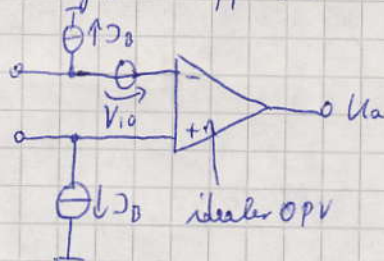 I_B
V_io
-
+
U_a
I_B
idealer OPV